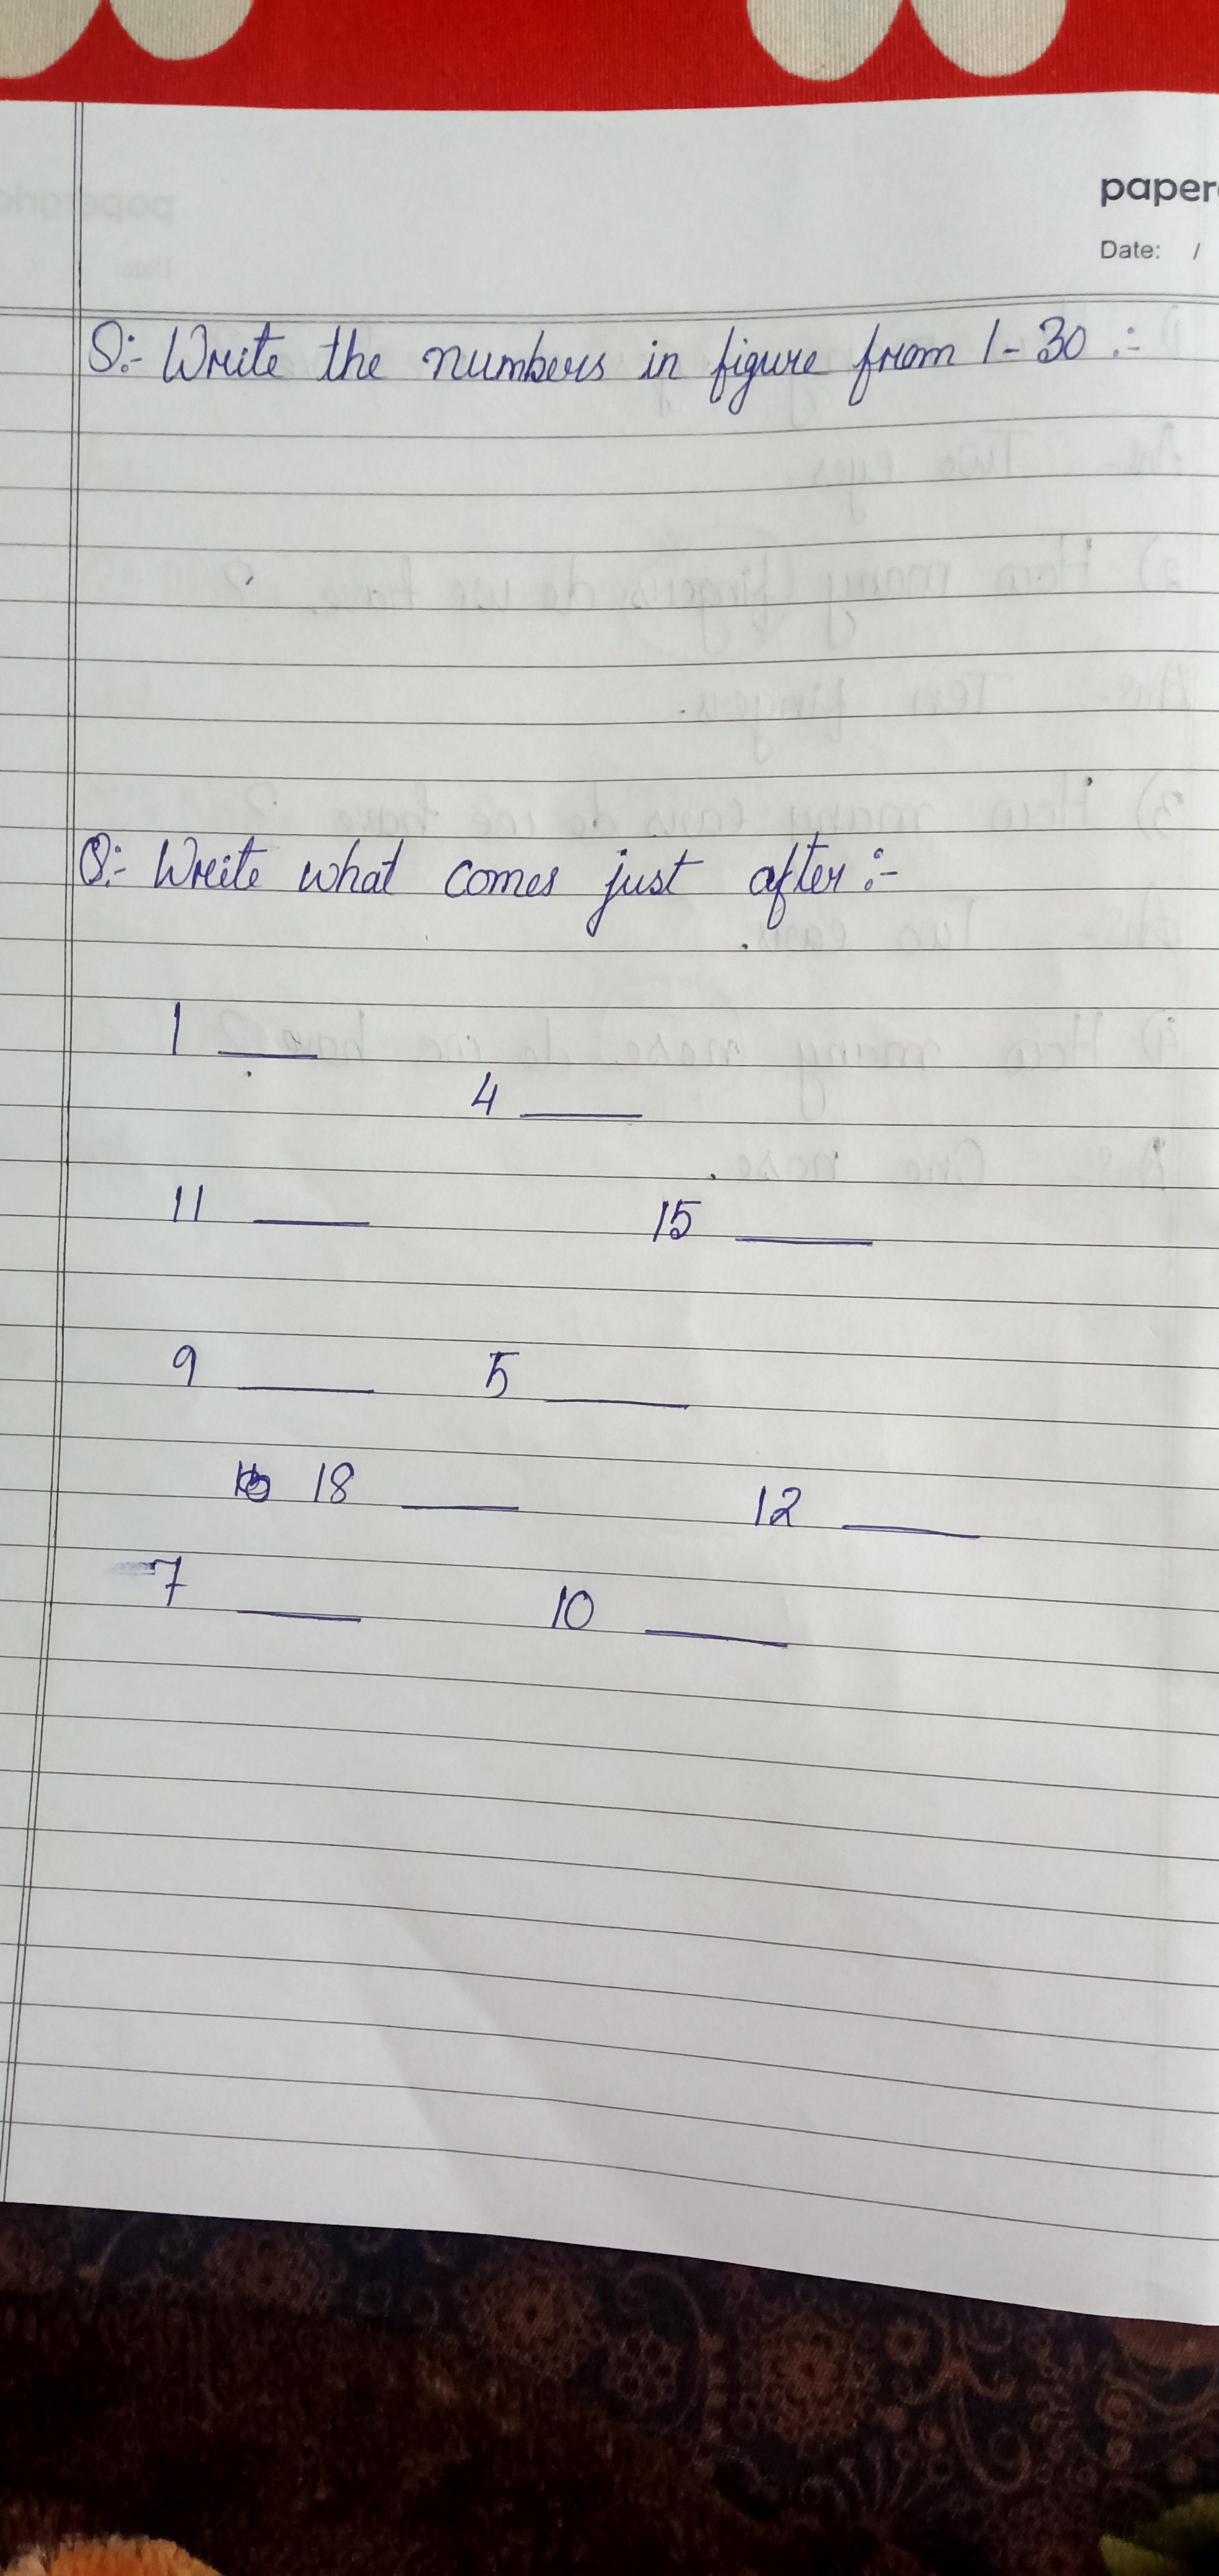 paper
Date: /
Q:- Write the numbers in figure from 1-30 :-
Q:- Write what comes just after :-
1 ____
4 ____
11 ____ 15 ____
9 ____ 5 ____
18 ____ 12 ____
7 ____ 10 ____